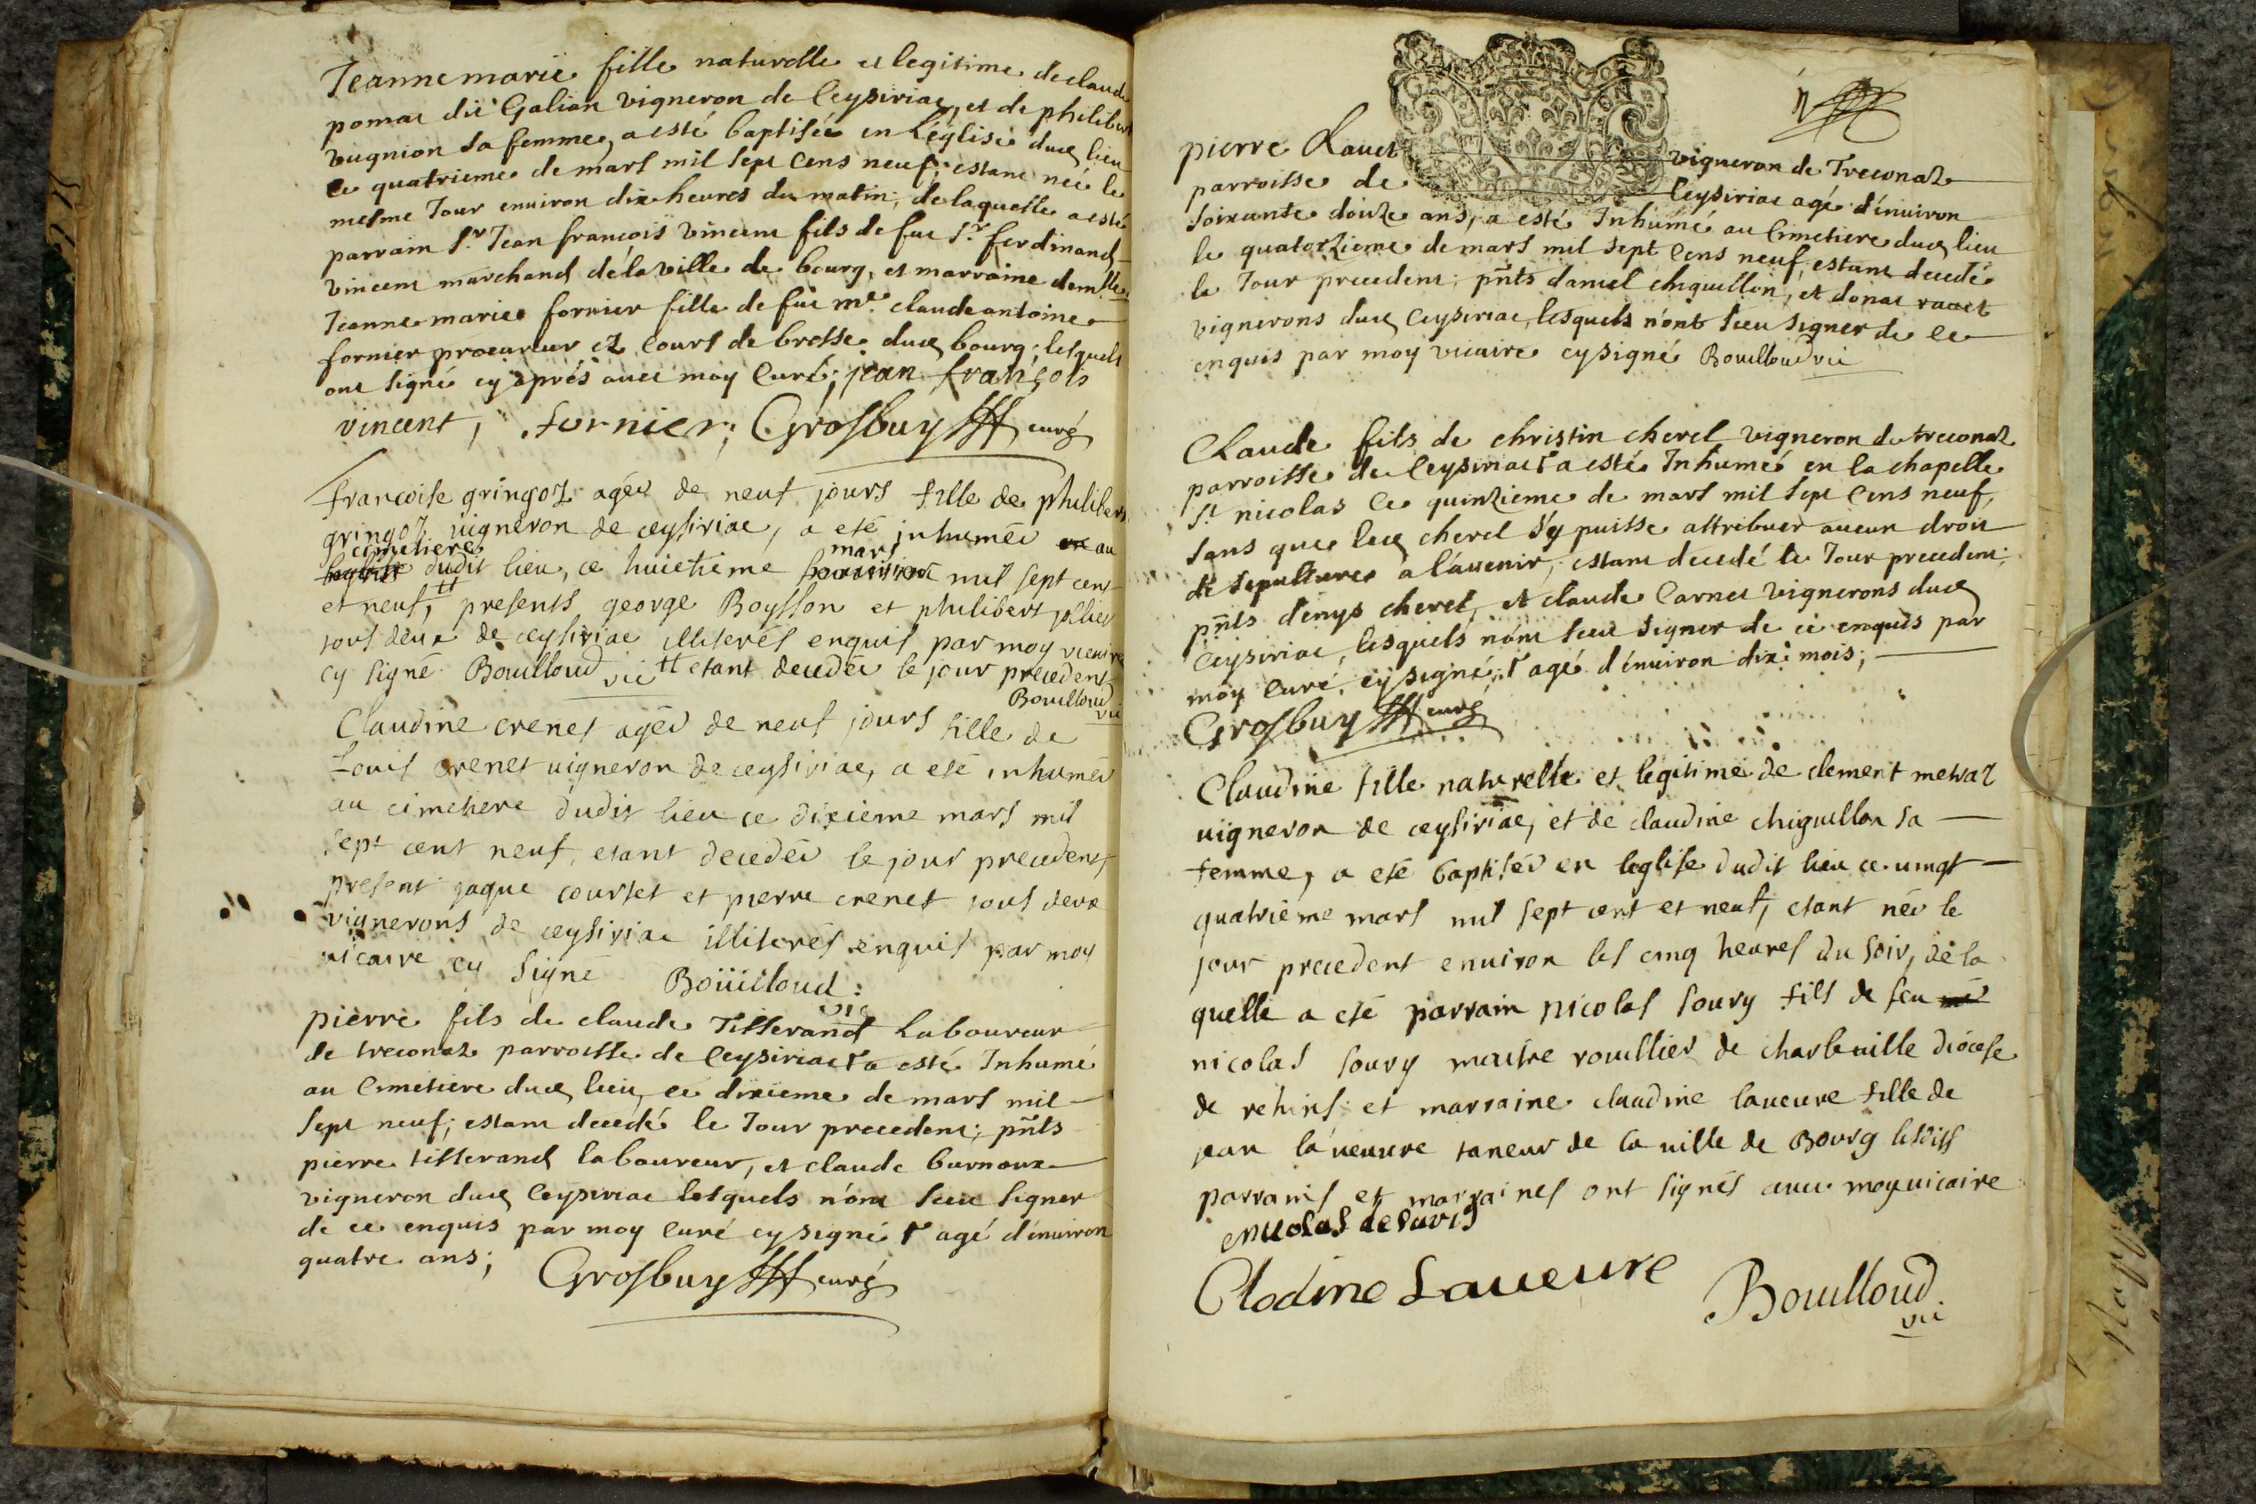 Jeanne marie fille naturelle et legitime de claude
pomat dit Galian vigneron de Ceysiriac, et de philiber
vugnion sa femme, a esté baptisée en L'eglise dud. lieu
ce quatrieme de mars mil sept Cens neuf; estant née le
mesme Jour environ dix heures du matin; de laquelle a esté
parrain Sr. Jean francois vincent fils de feu Sr. ferdinand
vincent marchand de la ville de bourg, et marraine demlle
Jeanne marie fornier fille de feu me. claude antoine
fornier procureur ez Cours de bresse dud. bourg; lesquels
ont signé cy aprés avec moy Curé; jean françois
vincent, fornier; Grosbuy curé
francoise gringoz agée de neuf jours fille de philibert
gringoz vigneron de ceysiriac, a eté inhumée au
cimetiere dudit lieu, ce huictieme mars mil sept cens
et neuf, tt presents george Boysson et philibert jollier
tous deux de ceysiriac illiterés enquis par moy vicaire
cy signé Bouilloud vic tt etant decedée le jour precedent
Bouilloud vic
Claudine crenet agée de neuf jours fille de
Louis crenet vigneron de ceysiriac, a eté inhumée
au cimetiere dudit lieu ce dixieme mars mil
sept cent neuf, etant decedée le jour precedent,
present jaque courtet et pierre crenet tous deux
vignerons de ceysiriac illiterés enquis par moy
vicaire cy signé Boüilloud:
vic
pierre fils de claude Tisserand Laboureur
de treconaz parroisse de Ceysiriac Γ a esté Inhumé
au Cimetiere dud. lieu, ce dixieme de mars mil
sept neuf; estant decedé le Jour precedent; pnts
pierre tisserand laboureur, et claude burnoux
vigneron dud. Ceysiriac lesquels n'ont sceu signer
de ce enquis par moy Curé cy signé Γ agé d'environ
quatre ans; Grosbuy curé
pierre Ravet vigneron de Treconaz
parroisse de Ceysiriac agé d'environ
soixante douze ans, a esté Inhumé au Cimetiere dud. lieu
le quatorzieme de mars mil sept Cens neuf, estant decedé
le Jour precedent; pnts daniel chiquillon, et donat ravet
vignerons dud. Ceysiriac, lesquels n'ont sceu signer de ce
enquis par moy vicaire cy signé Bouilloud vic
Claude fils de christin cherel vigneron de treconaz
parroisse de Ceysiriac Γ a esté Inhumé en la chapelle
St nicolas ce quinzieme de mars mil sept Cens neuf,
sans que led. cherel s'y puisse attribuer aucun droit
de sepulture a l'avenir, estant decedé le Jour precedent;
pnts denys cherel, et claude Carnet vignerons dud.
Ceysiriac, lesquels n'ont sceu signer de ce enquis par
moy Curé, cy signé; Γ agé d'environ dix mois;
Grosbuy curé
Claudine fille naturelle et legitime de clement metraz
vigneron de ceysiriac, et de claudine chiguillon sa
femme, a eté baptisée en leglise dudit lieu ce vingt
quatrieme mars mil sept cent et neuf, etant née le
jour precedent environ les cinq heures du soir, de la
quelle a eté parrain nicolas soury fils de feu
nicolas soury maitre rouillier de charleuille diocese
de rehins et marraine claudine laveuvre fille de
jean laveuvre taneur de la ville de Bourg lesdits
parrains et marraines ont signés avec moy vicaire
Clodine Laueuvre Bouilloud
vic